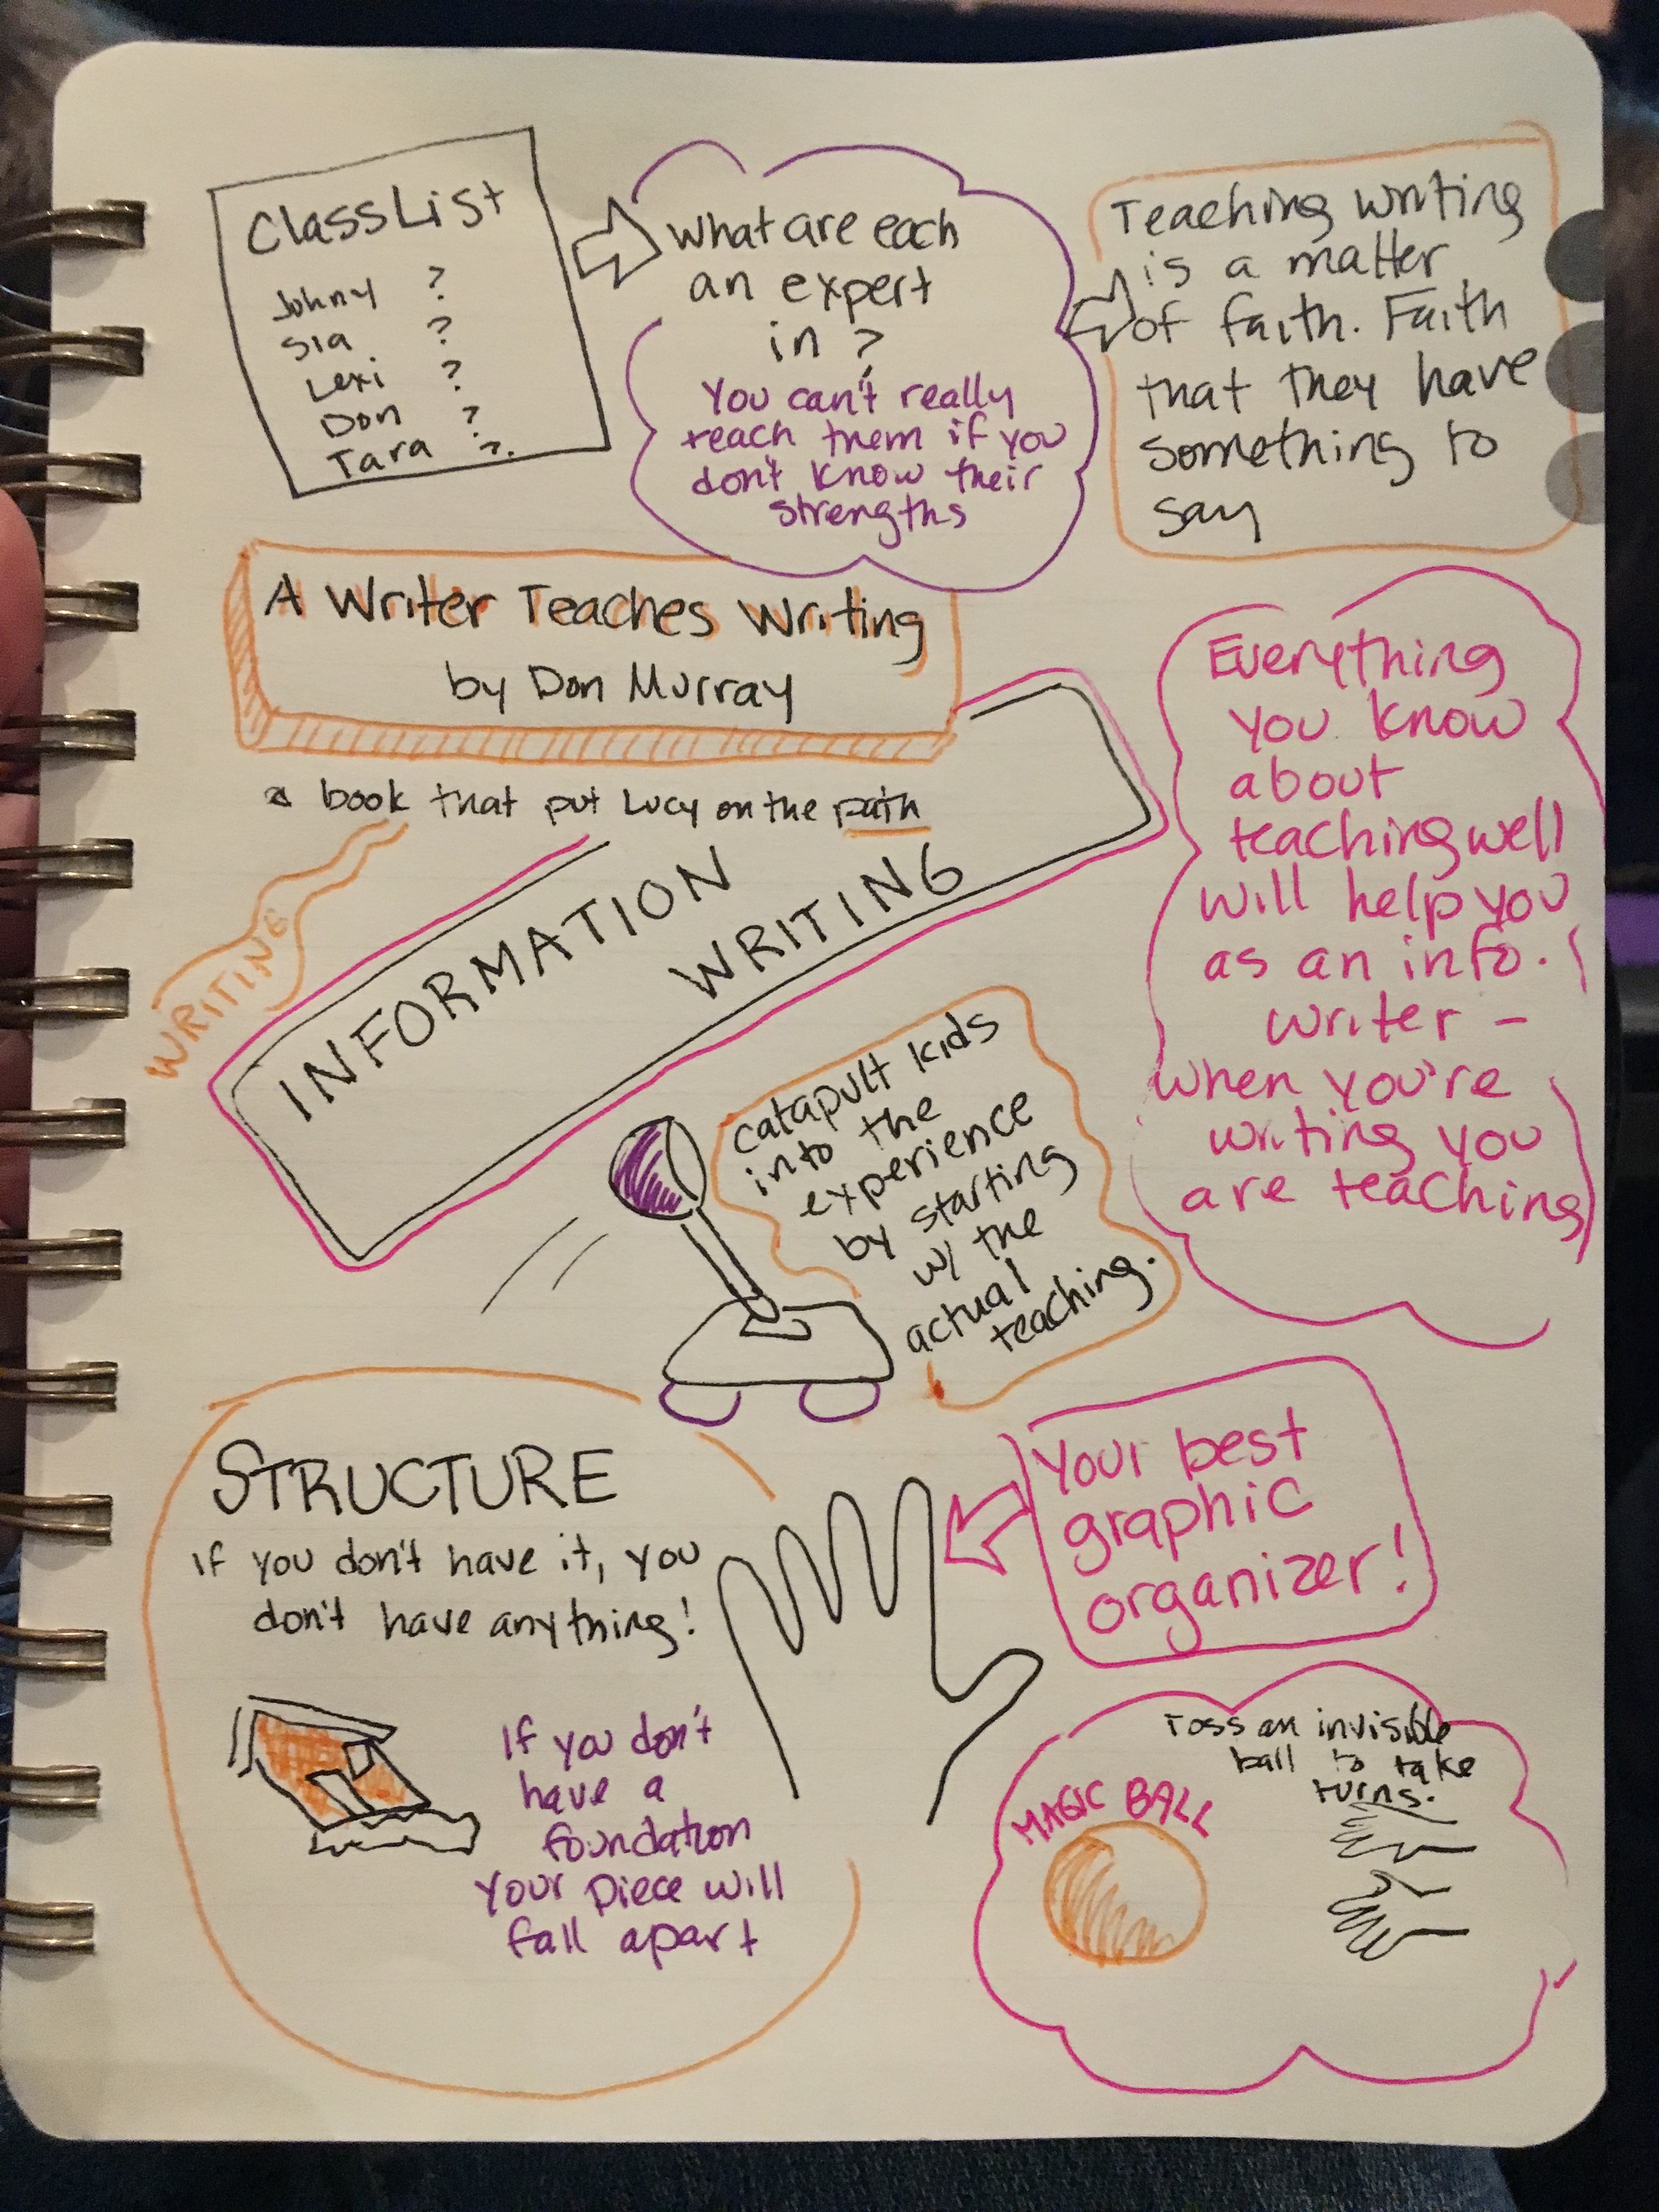 Class List
Johny ?
Sia ?
Lexi ?
Don ?
Tara ?.
What are each
an expert
in ?
You can't really
teach them if you
don't know their
strengths
Teaching writing
is a matter
of faith. Faith
that they have
something to
say
A Writer Teaches Writing
by Don Murray
a book that put Lucy on the path
WRITING
INFORMATION
WRITING
Everything
you know
about
teaching well
will help you
as an info.
writer -
when you're
writing you
are teaching
catapult kids
into the
experience
by starting
w/ the
actual
teaching.
STRUCTURE
If you don't have it, you
don't have anything!
If you don't
have a
foundation
your piece will
fall apart
Your best
graphic
organizer!
Toss an invisible
ball to take
turns.
MAGIC BALL